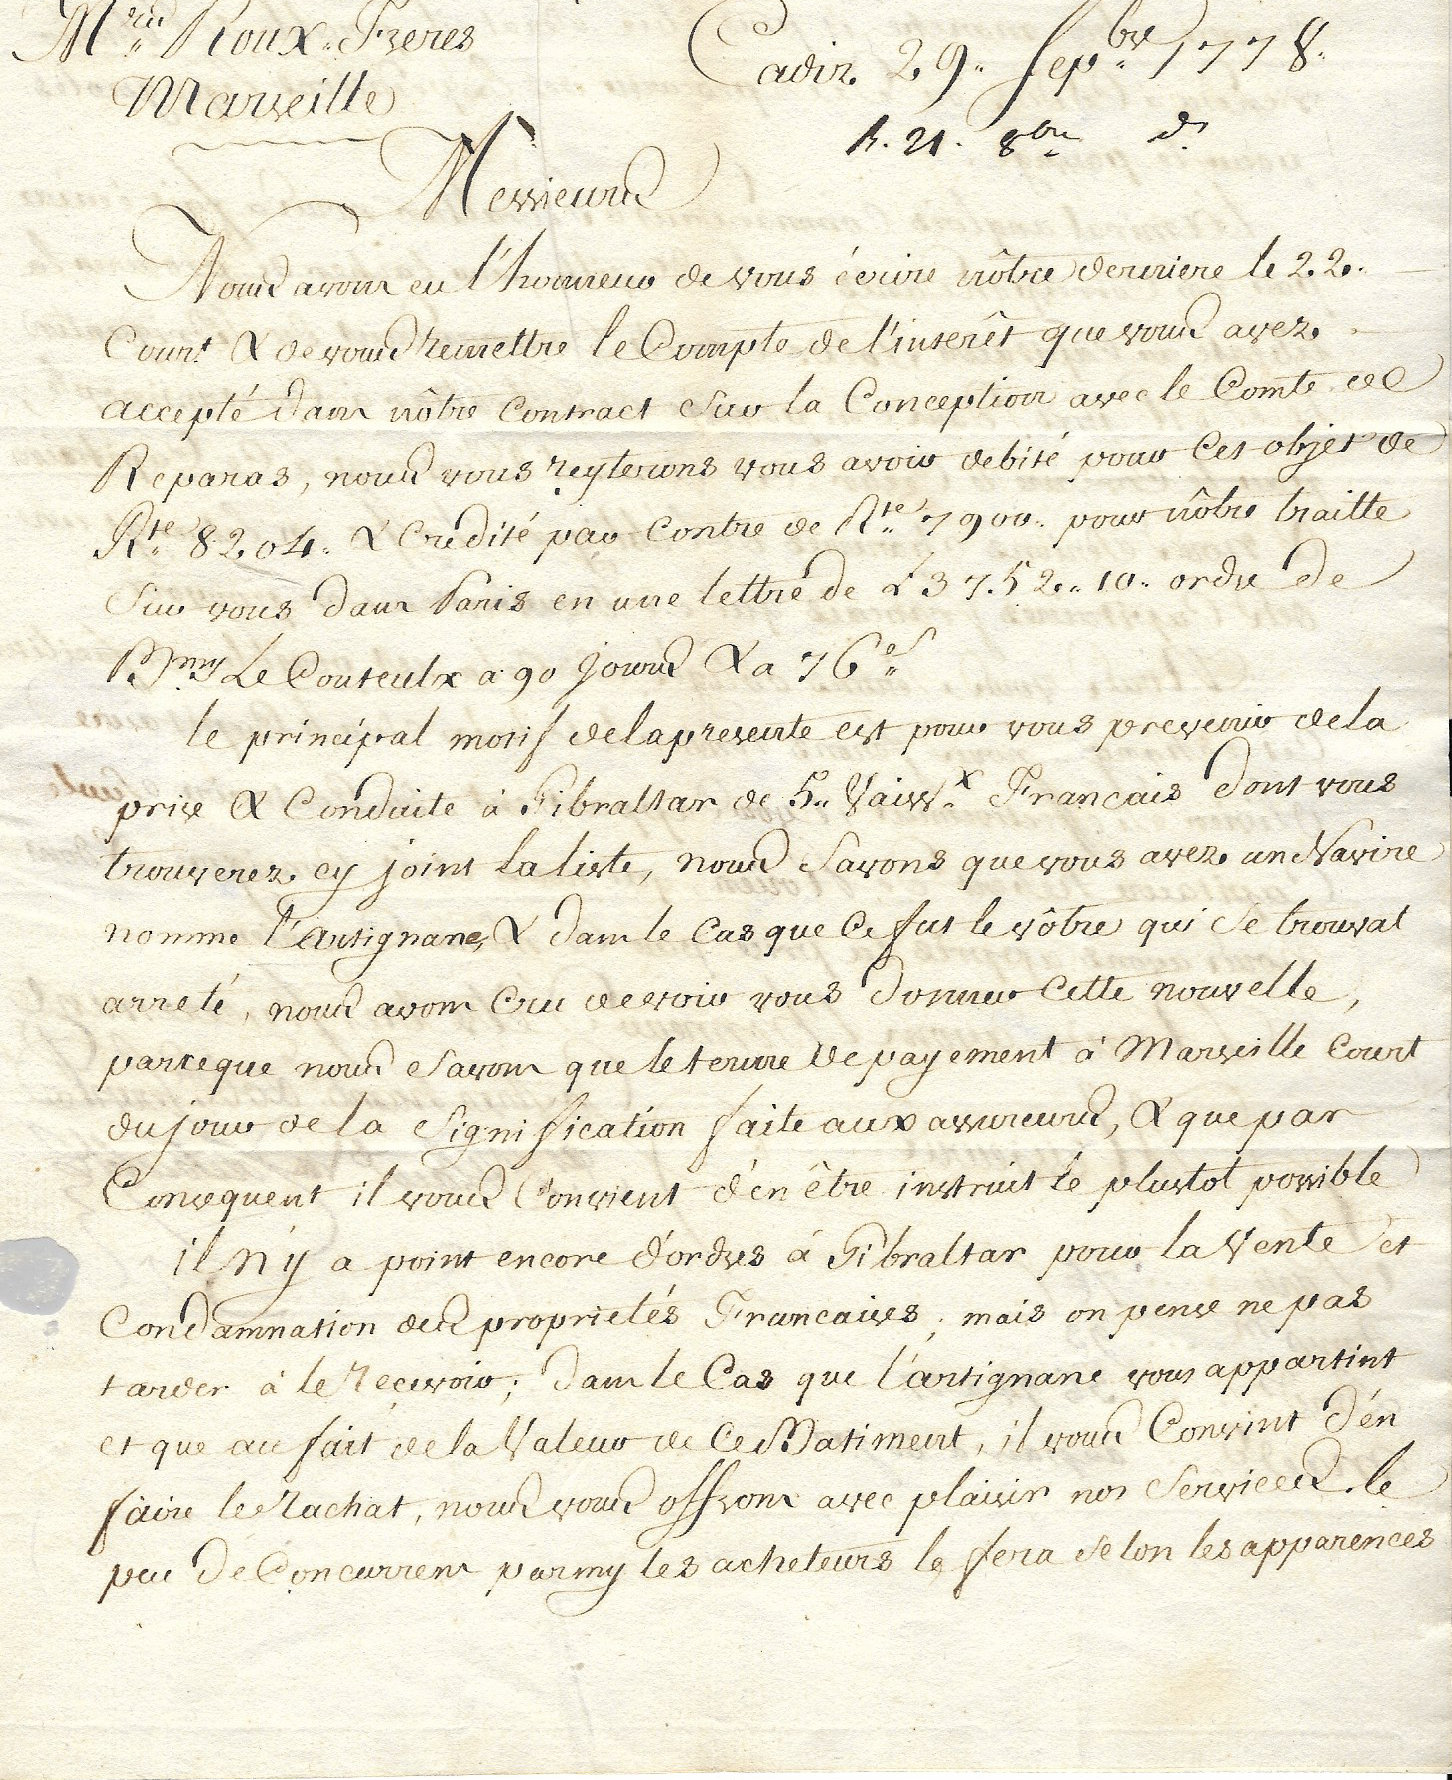 Mrs Roux Freres
Cadix 29 Sepbre 1778
Marseille
R. 21. 8bre do
Messieurs
Nous avons eu l'honneur de vous écrire nôtre derniere le 22.
Court & de vous remettre le Compte de l'interêt que vous avez
accepté dans nôtre Contract sur la Conception avec le Comte de
Reparas, nous vous reyterons vous avoir debité pour cet objet de
Rte 8204. & Credité par Contre de Rte 7900. pour nôtre traitte
sur vous dans Paris en une lettre de £ 3752. 10. ordre de
Bmy Le Couteulx a 90 Jours & a 76 s
le principal motif de la presente est pour vous prevenir de la
prise & Conduite à Gibraltar de 5. Vaissx Francais dont vous
trouverez cy joint la liste, nous savons que vous avez un Navire
nomme l'artignane, & dans le Cas que Ce fut le vôtre qui se trouvat
arreté, nous avons Cru devoir vous donner Cette nouvelle,
parceque nous savons que le terme de payement à Marseille Court
du jour de la Signification faite aux assureurs, & que par
Consequent il vous Convient d'én être instruit le plustot possible
il n'y a point encore d'ordres à Gibraltar pour la Vente et
Condamnation des proprietés Francaises, mais on pense ne pas
tarder à le recevoir; dans le Cas que l'artignane vous appartint
et que au fait de la Valeur de Ce Batiment, il vous Convint d'én
faire le Rachat, nous vous offrons avec plaisir nos services. le
peu de Concurrens parmy les acheteurs le fera selon les apparences